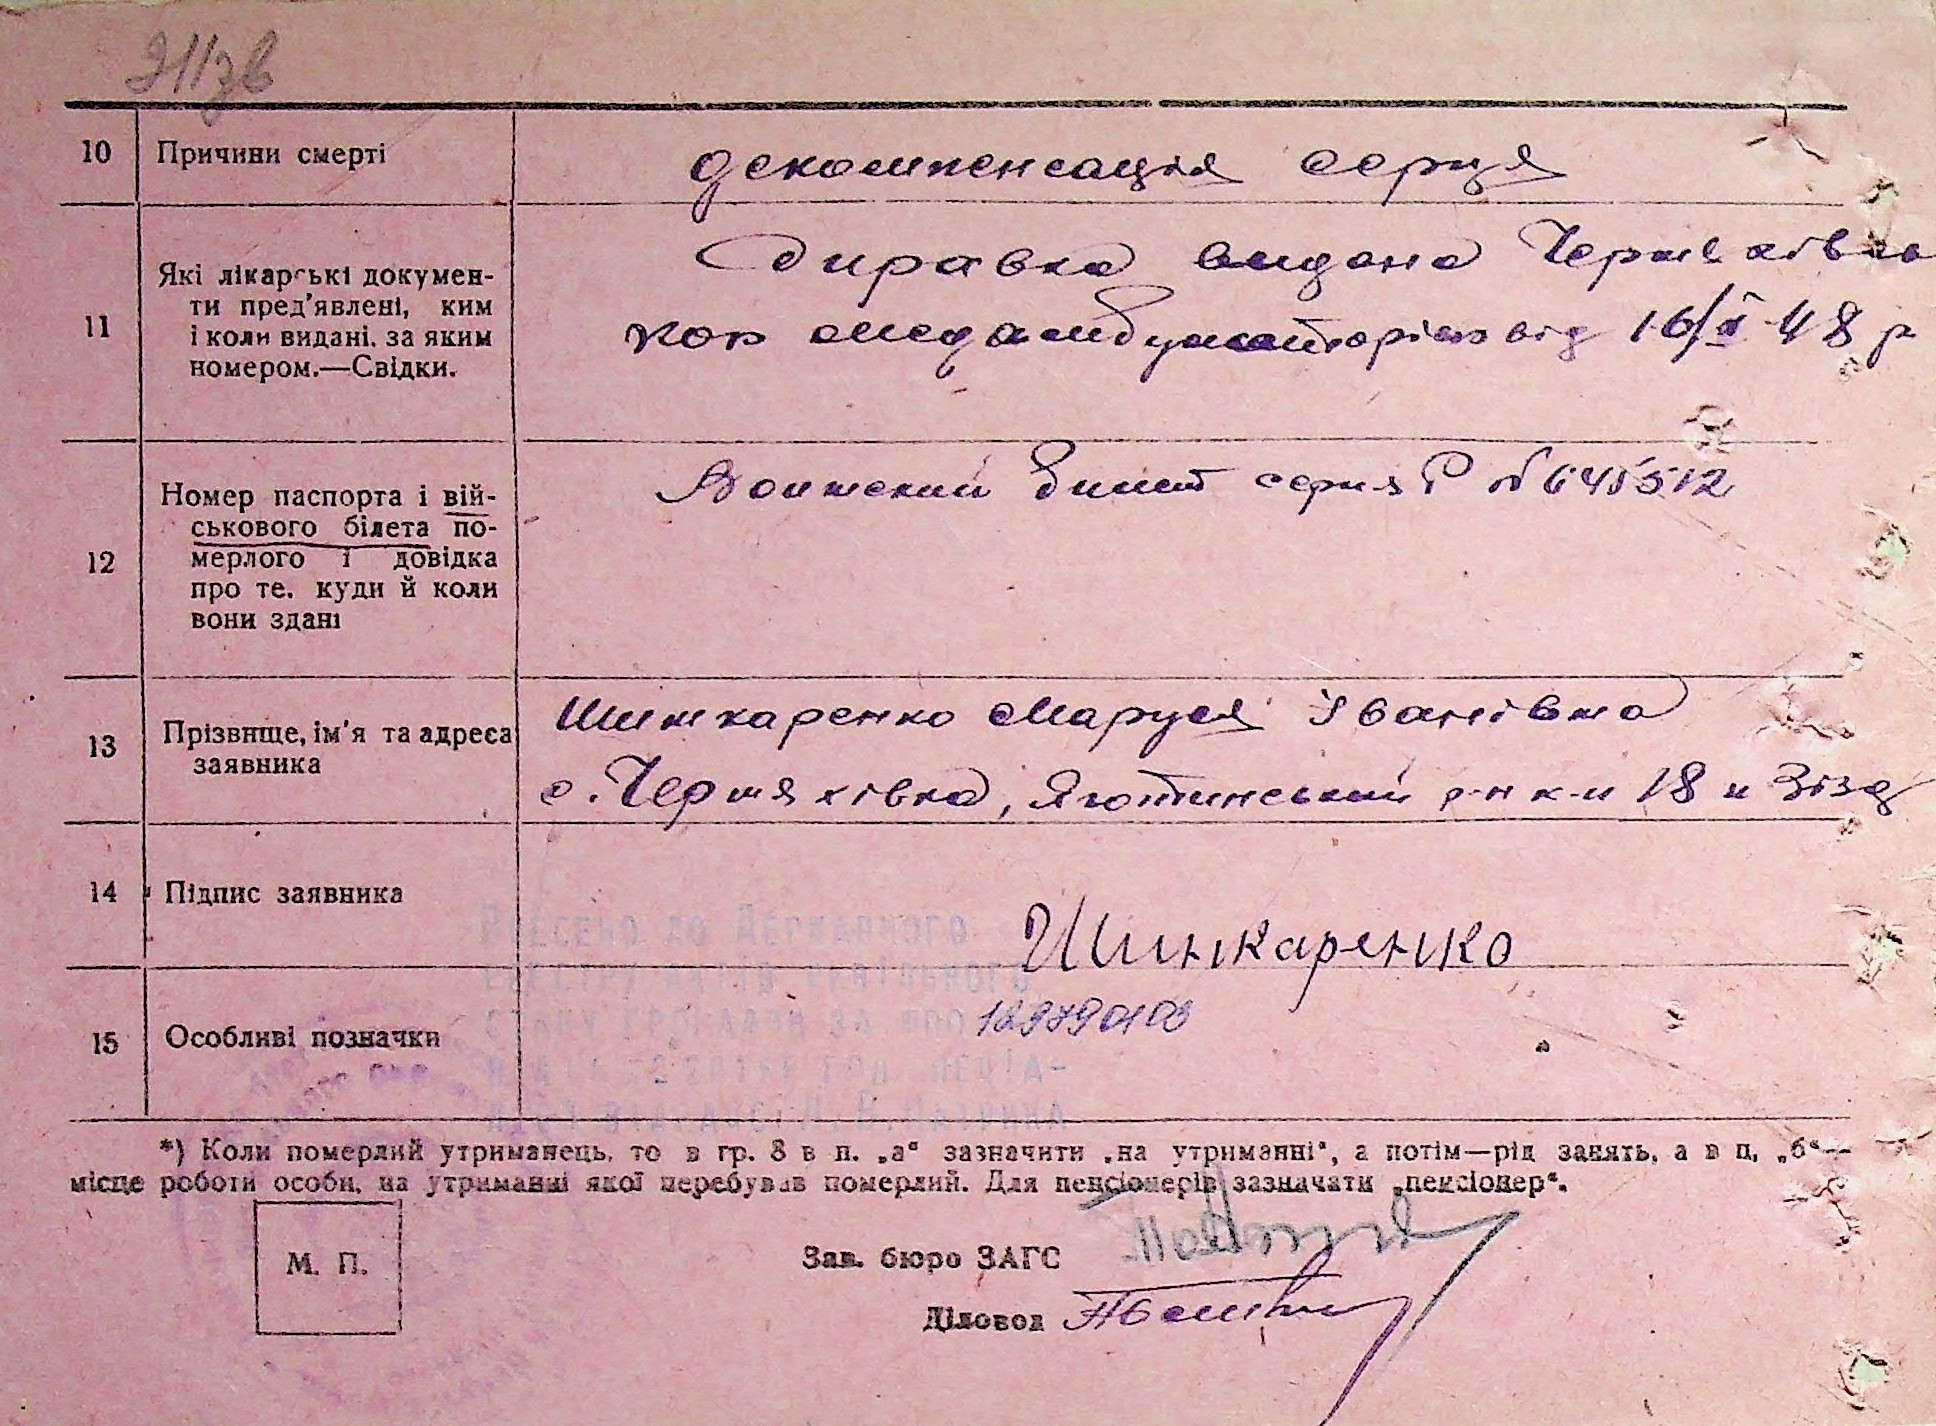 10 Причини смерті
декомпенсація серця
11 Які лікарські докумен-
ти пред'явлені, ким
і коли видані, за яким
номером.—Свідки.
Справка видана Черняхівсь
кою медамбулаторією від 16/I 48 р
12 Номер паспорта і вій-
ськового білета по-
мерлого і довідка
про те, куди й коли
вони здані
Воинский билет серия Р № 645512
13 Прізвище, ім'я та адреса
заявника
Шинкаренко Маруся Іванівна
с. Черняхівка, Яготинський р-н к-и 18 и Зізд
14 Підпис заявника
Шинкаренко
15 Особливі позначки
Внесено до Державного
*) Коли померлий утриманець, то в гр. 8 в п. „а“ зазначити „на утриманні“, а потім—рід занять, а в п. „б“—
місце роботи особи, на утриманні якої перебував померлий. Для пенсіонерів зазначати „пенсіонер“.
М. П.
Зав. бюро ЗАГС
Діловод